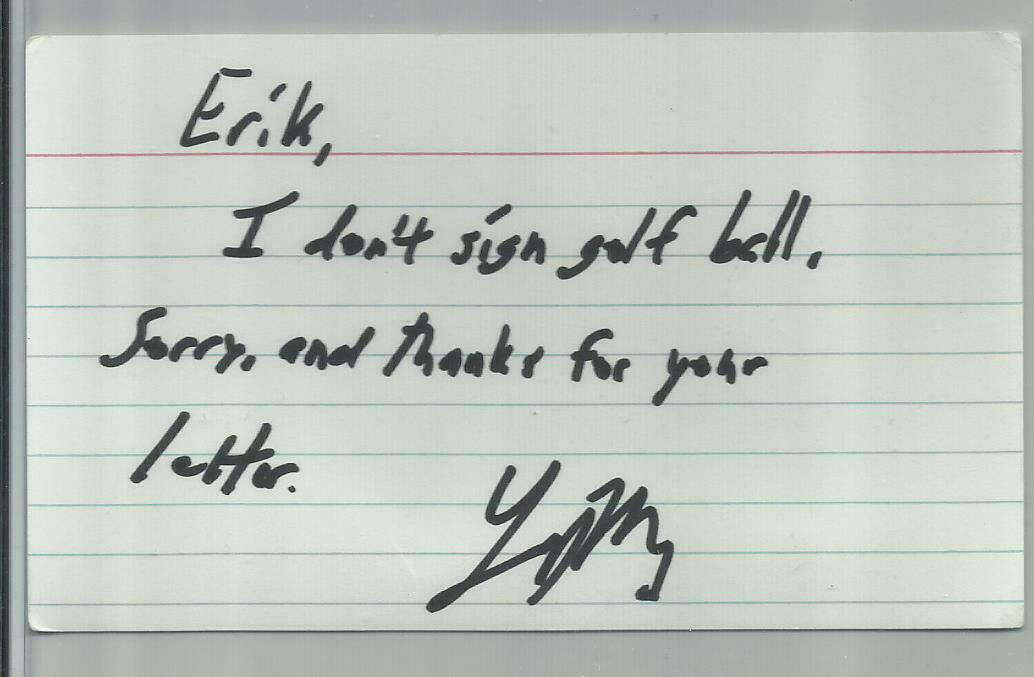 Erik,
I don't sign golf ball.
Sorry, and thanks for your
letter.